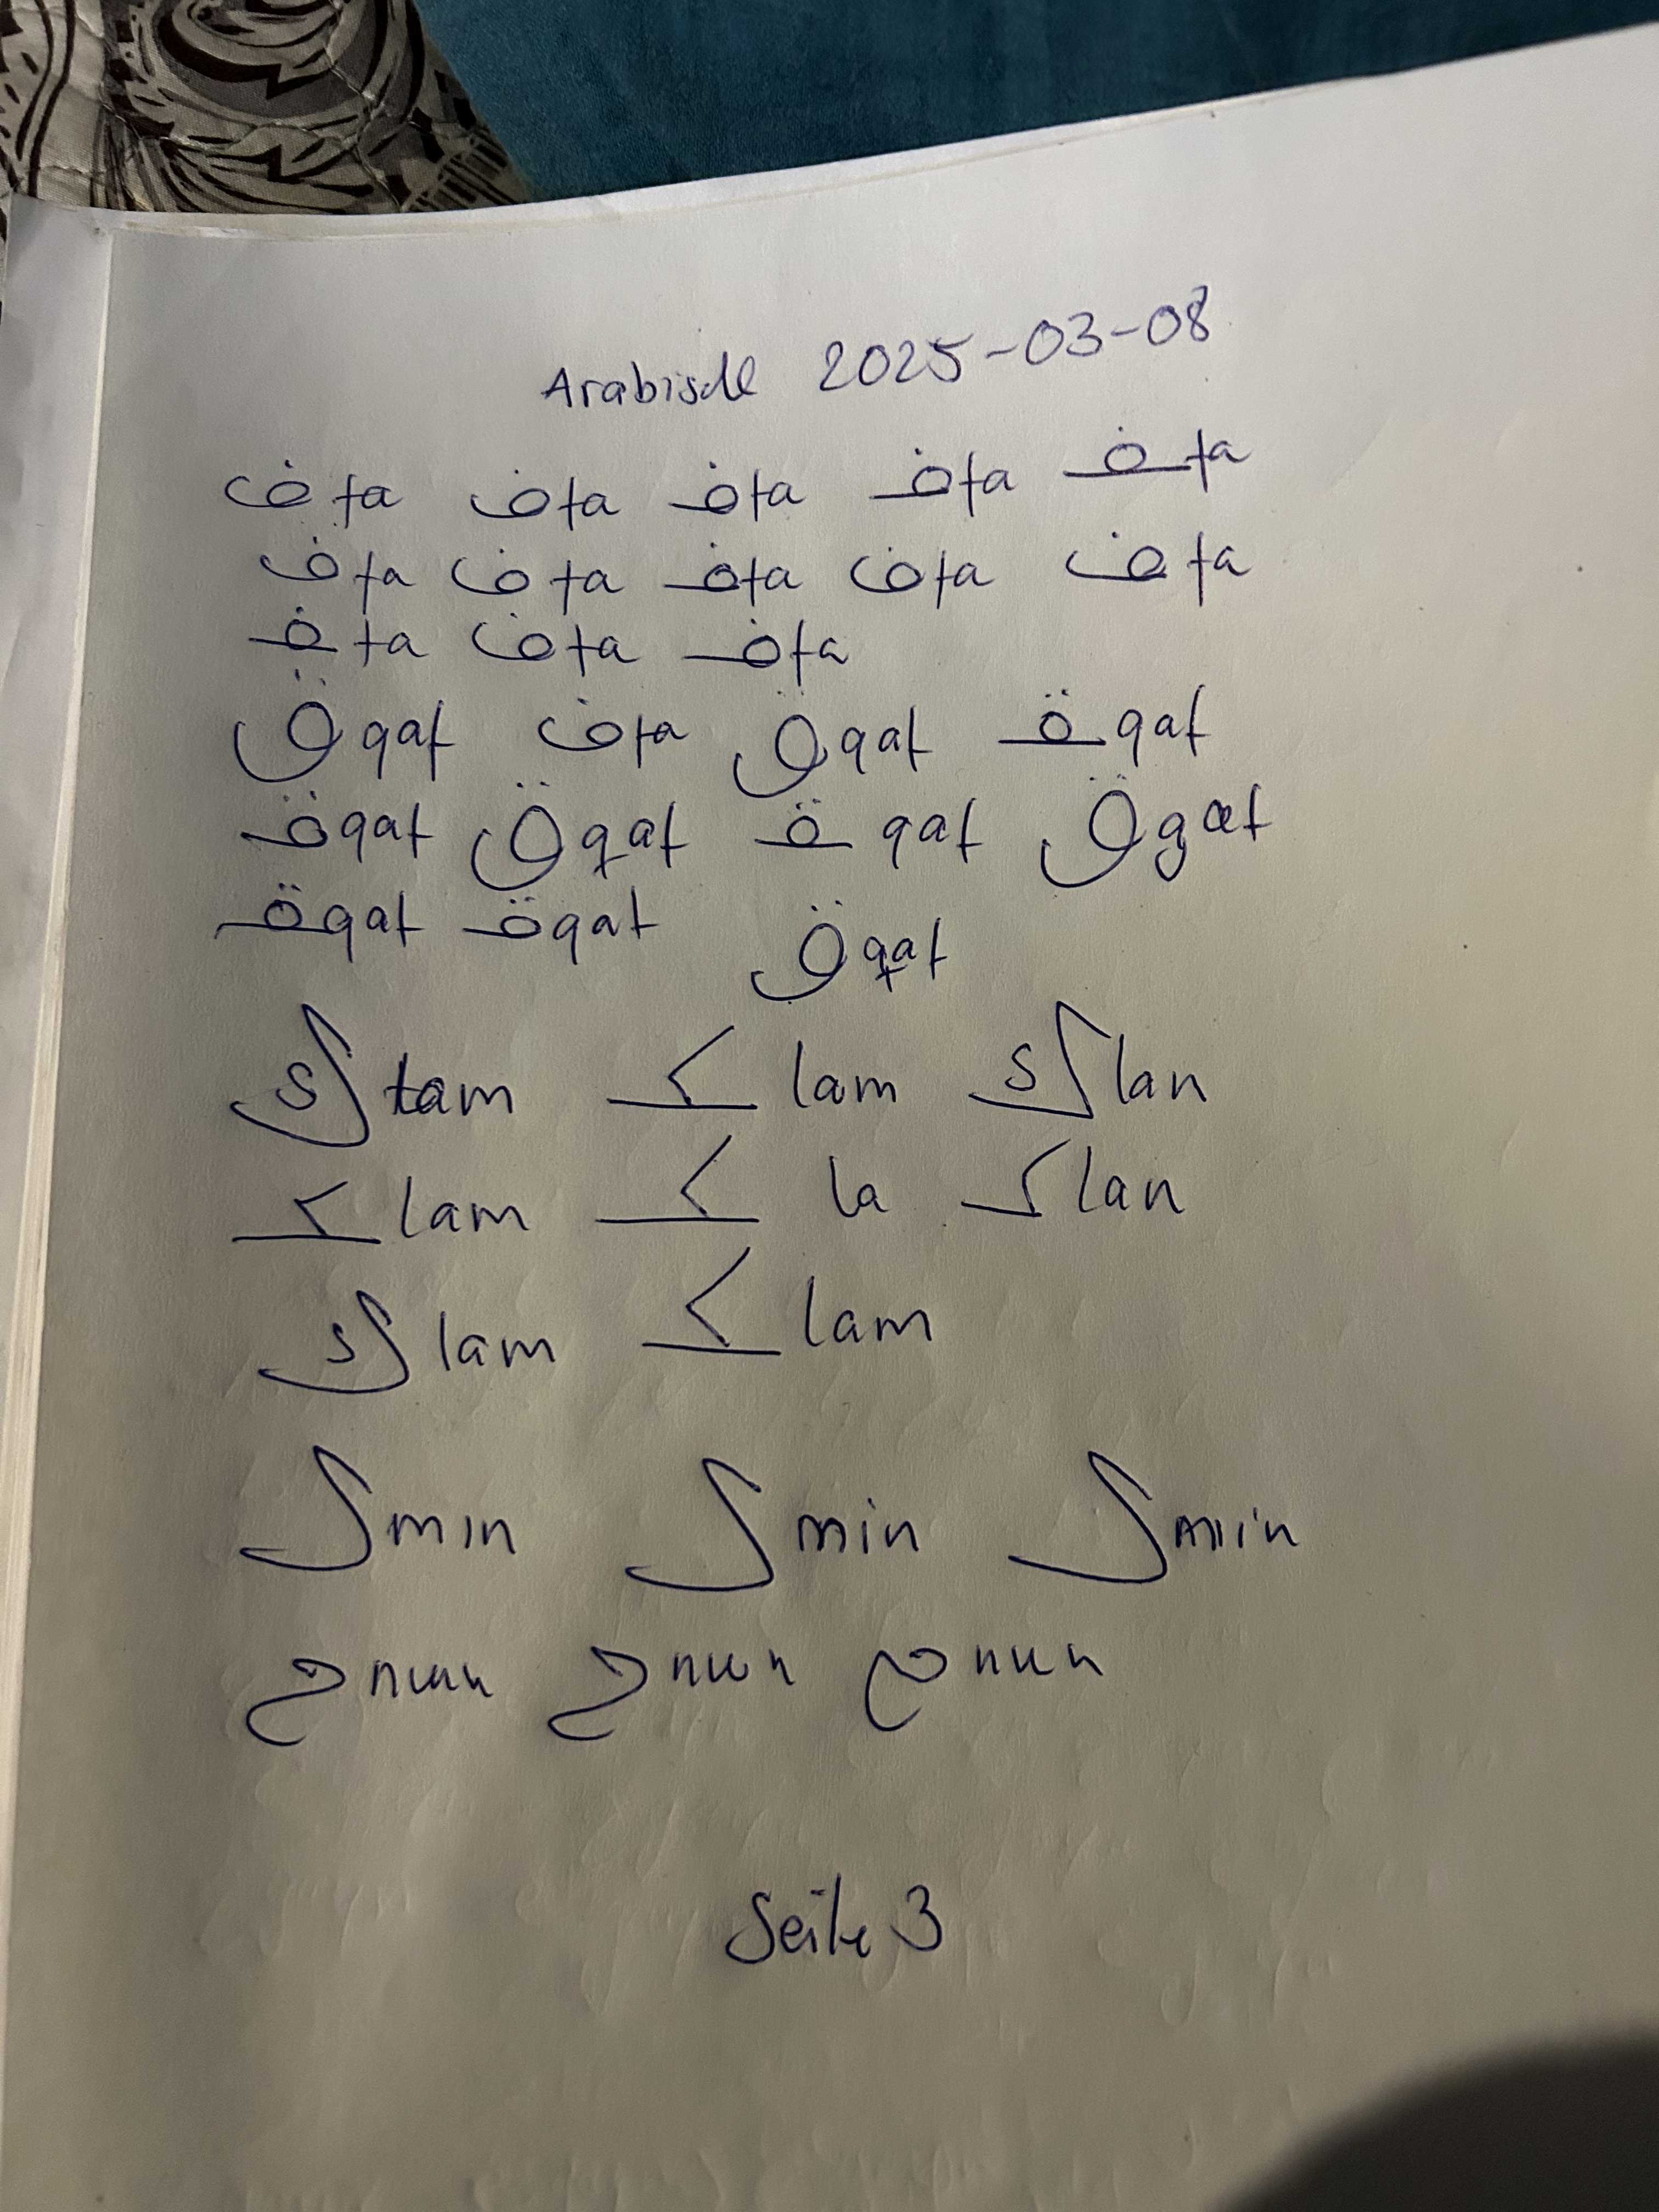 Arabisch 2025-03-08
ف fa ف fa ف fa ف fa ف fa
ف fa ف fa ف fa ف fa ف fa
ف fa ف fa ف fa
ق qaf ف fa ق qaf ق qaf
ق qaf ق qaf ق qaf ق qaf
ق qaf ق qaf ق qaf
ك lam ک lam ك lan
ک lam ک la ک lan
ك lam ک lam
ل min ل min ل min
nun nun nun
Seite 3